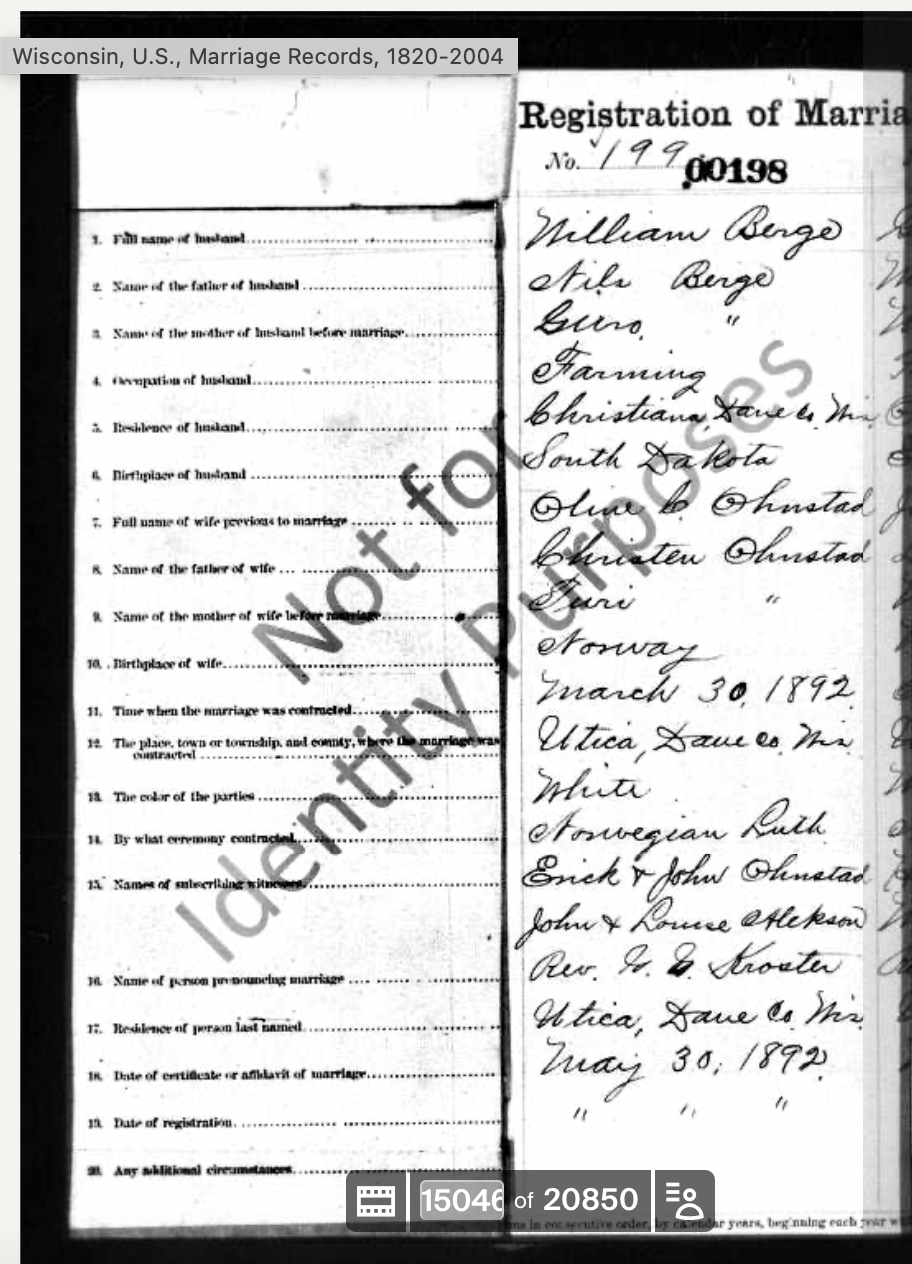 Wisconsin, U.S., Marriage Records, 1820-2004
Registration of Marria
No. 199
00198
1. Full name of husband
William Berge
2. Name of the father of husband
Nils Berge
3. Name of the mother of husband before marriage
Guro "
4. Occupation of husband
Farming
5. Residence of husband
Christiana, Dane Co. Wis
6. Birthplace of husband
South Dakota
7. Full name of wife previous to marriage
Oline C Ohnstad
8. Name of the father of wife
Christen Ohnstad
9. Name of the mother of wife before marriage
"
10. Birthplace of wife
Norway
11. Time when the marriage was contracted
March 30, 1892
12. The place, town or township, and county, where the marriage was
contracted
Utica, Dane Co. Wis
13. The color of the parties
White
14. By what ceremony contracted
Norwegian Luth
15. Names of subscribing witnesses
Erick & John Ohnstad
John & Louise
16. Name of person pronouncing marriage
Rev. G. G. Kroster
17. Residence of person last named
Utica, Dane Co. Wis
18. Date of certificate or affidavit of marriage
May 30, 1892
19. Date of registration
" " "
20. Any additional circumstances
Not for
Identity Purposes
15046 of 20850
in consecutive order, by calendar years, beginning each year